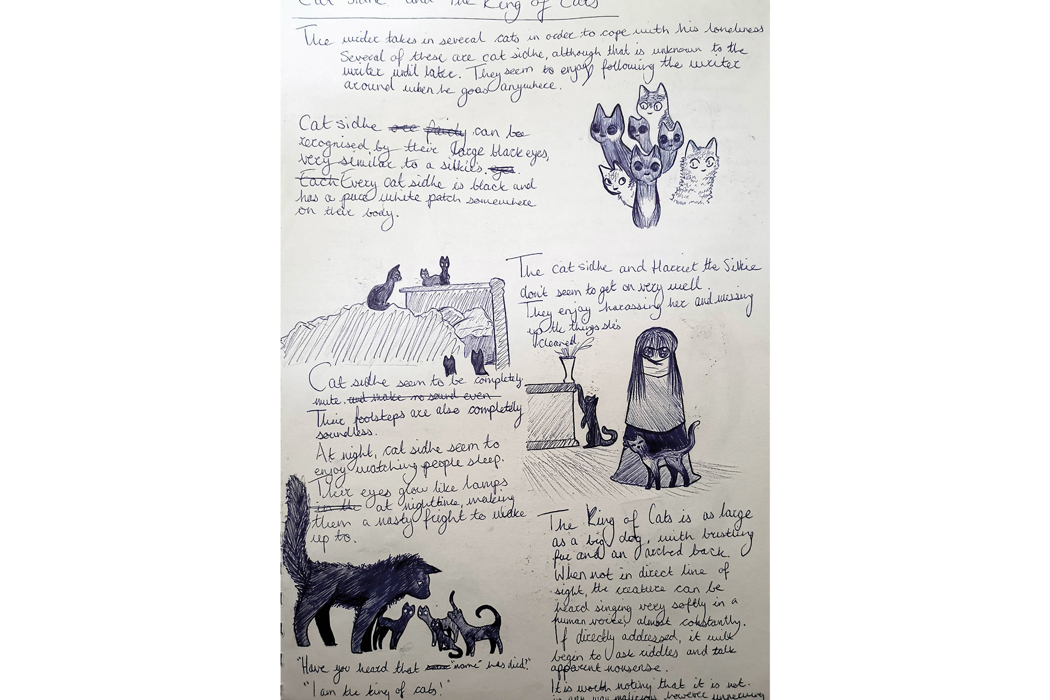 Cat Sidhe and The King of Cats
The writer takes in several cats in order to cope with his loneliness
Several of these are cat sidhe, although that is unknown to the
writer until later. They seem to enjoy following the writer
around when he goes anywhere.
Cat sidhe are fairly can be
recognised by their large black eyes,
very similar to a silkie's.
Each Every cat sidhe is black and
has a pure white patch somewhere
on their body.
The cat sidhe and Harriet the Silkie
don't seem to get on very well.
They enjoy harassing her and messing
up the things she's
cleaned
Cat sidhe seem to be completely
mute. and make no sound even
Their footsteps are also completely
soundless.
At night, cat sidhe seem to
enjoy watching people sleep.
Their eyes glow like lamps
in the at nighttime, making
them a nasty fright to wake
up to.
The King of Cats is as large
as a big dog, with bristling
fur and an arched back.
When not in direct line of
sight, the creature can be
heard singing very softly in a
human voice, almost constantly.
If directly addressed, it will
begin to ask riddles and talk
apparent nonsense.
It is worth noting that it is not
in any way malicious, however unnerving
"Have you heard that "name" has died?"
"I am the king of cats!"